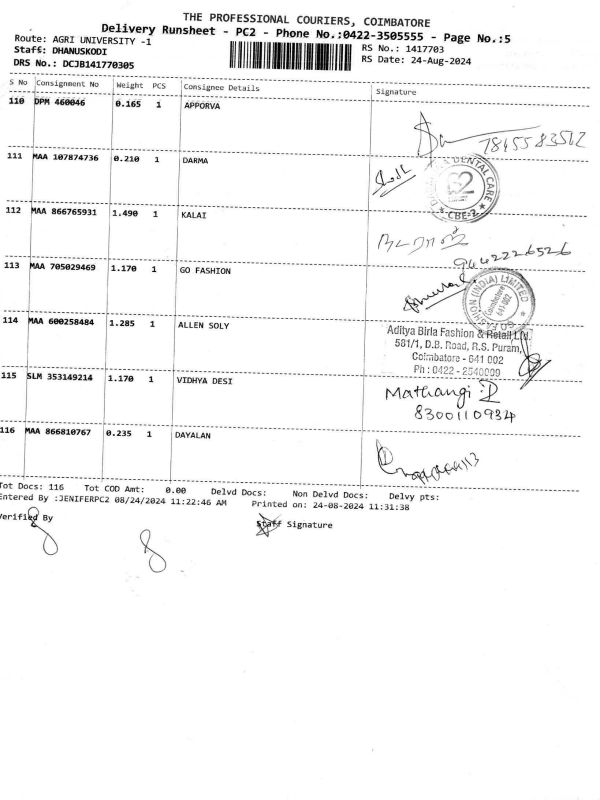 THE PROFESSIONAL COURIERS, COIMBATORE
Delivery Runsheet - PC2 - Phone No.:0422-3505555 - Page No.:5
Route: AGRI UNIVERSITY -1
RS No.: 1417703
Staff: DHANUSKODI
RS Date: 24-Aug-2024
DRS No.: DCJB141770305
S No Consignment No Weight PCS Consignee Details Signature
110 DPM 460046 0.165 1 APPORVA
111 MAA 107874736 0.210 1 DARMA
DENTAL CARE
CBE-2
112 MAA 866765931 1.490 1 KALAI
நடராஜ்
9442226526
113 MAA 705029469 1.170 1 GO FASHION
(INDIA) LIMITED
Coimbatore
641 002
114 MAA 600258484 1.285 1 ALLEN SOLY
Aditya Birla Fashion & Retail Ltd.
581/1, D.B. Road, R.S. Puram,
Coimbatore - 641 002
Ph : 0422 - 2540009
115 SLM 353149214 1.170 1 VIDHYA DESI
Mathangi P
8300110934
116 MAA 866810767 0.235 1 DAYALAN
Tot Docs: 116 Tot COD Amt: 0.00 Delvd Docs: Non Delvd Docs: Delvy pts:
Entered By :JENIFERPC2 08/24/2024 11:22:46 AM Printed on: 24-08-2024 11:31:38
Verified By
Staff Signature